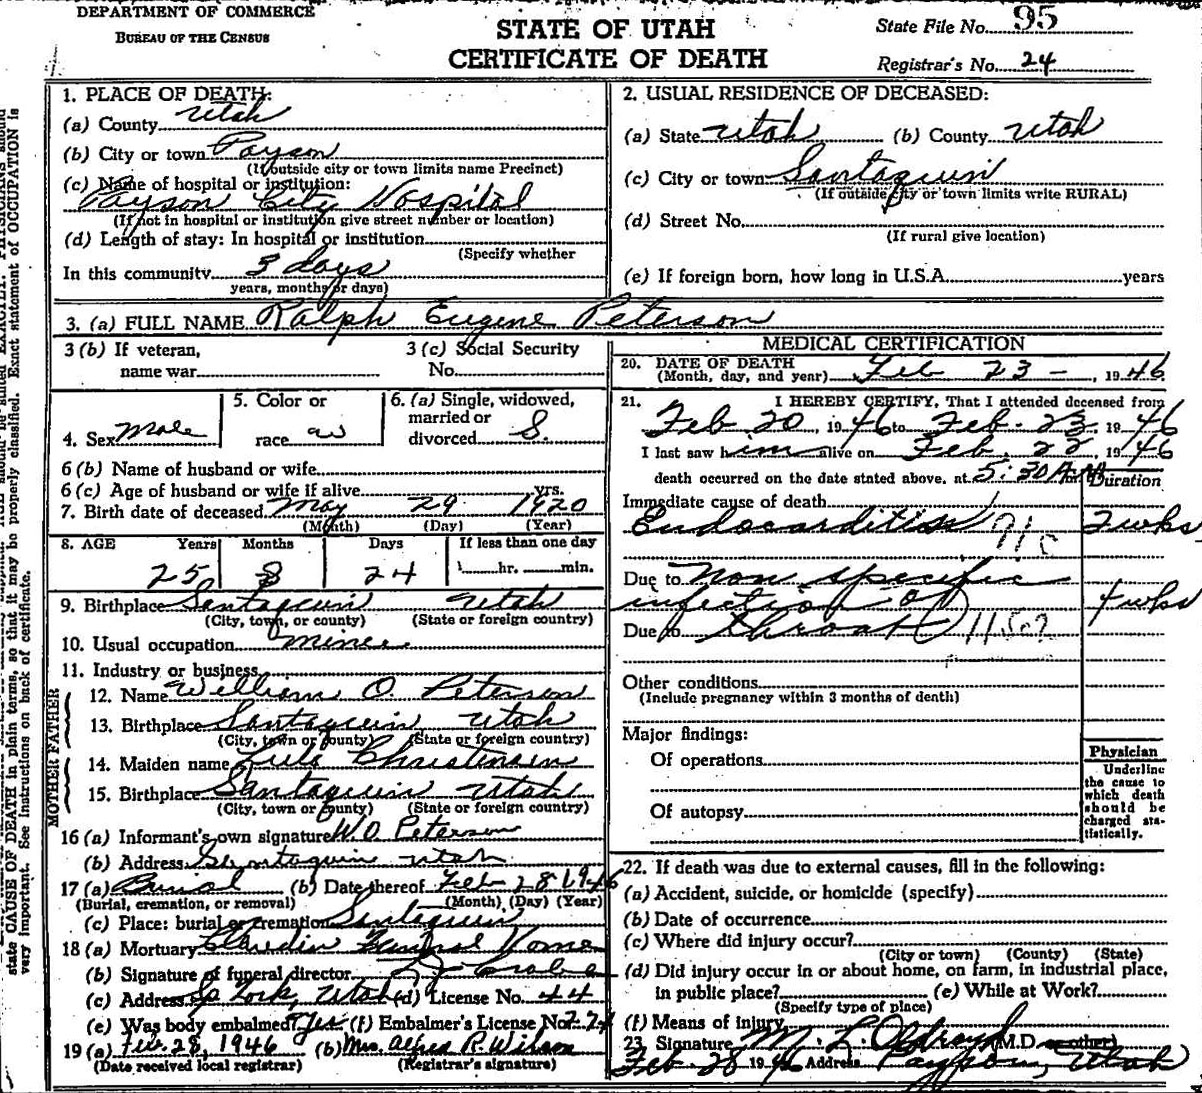 DEPARTMENT OF COMMERCE
BUREAU OF THE CENSUS
STATE OF UTAH
CERTIFICATE OF DEATH
State File No. 95
Registrar's No. 24
1. PLACE OF DEATH:
(a) County Utah
(b) City or town Payson
(If outside city or town limits name Precinct)
(c) Name of hospital or institution:
Payson City Hospital
(If not in hospital or institution give street number or location)
(d) Length of stay: In hospital or institution
(Specify whether
In this community 3 days
years, months or days)
2. USUAL RESIDENCE OF DECEASED:
(a) State Utah (b) County Utah
(c) City or town Santaquin
(If outside city or town limits write RURAL)
(d) Street No.
(If rural give location)
(e) If foreign born, how long in U.S.A. years
3. (a) FULL NAME Ralph Eugene Peterson
3 (b) If veteran,
name war
3 (c) Social Security
No.
4. Sex Male
5. Color or
race W
6. (a) Single, widowed,
married or
divorced S.
6 (b) Name of husband or wife
6 (c) Age of husband or wife if alive yrs.
7. Birth date of deceased May 29 1920
(Month) (Day) (Year)
8. AGE Years Months Days If less than one day
25 8 24 hr. min.
9. Birthplace Santaquin Utah
(City, town, or county) (State or foreign country)
10. Usual occupation miner
11. Industry or business
FATHER
12. Name William O. Peterson
13. Birthplace Santaquin Utah
(City, town or county) (State or foreign country)
MOTHER
14. Maiden name Christensen
15. Birthplace Santaquin Utah
(City, town or county) (State or foreign country)
16 (a) Informant's own signature W. O. Peterson
(b) Address Santaquin Utah
17 (a) Burial (b) Date thereof Feb 28 1946
(Burial, cremation, or removal) (Month) (Day) (Year)
(c) Place: burial or cremation Santaquin
18 (a) Mortuary Funeral Home
(b) Signature of funeral director
(c) Address Sp Fork, Utah (d) License No. 44
(e) Was body embalmed? Yes (f) Embalmer's License No. 224
19 (a) Feb. 28, 1946 (b) Mrs. Alfred R. Wilson
(Date received local registrar) (Registrar's signature)
MEDICAL CERTIFICATION
20. DATE OF DEATH
(Month, day, and year) Feb 23 - , 1946
21. I HEREBY CERTIFY, That I attended deceased from
Feb 20, 1946 to Feb. 23, 1946
I last saw him alive on Feb. 22, 1946
death occurred on the date stated above, at 5:30 A m
Duration
Immediate cause of death
Endocarditis 2 wks
Due to Non specific
infection of 4 wks
Due to throat
Other conditions
(Include pregnancy within 3 months of death)
Major findings:
Of operations
Of autopsy
Physician
Underline
the cause to
which death
should be
charged sta-
tistically.
22. If death was due to external causes, fill in the following:
(a) Accident, suicide, or homicide (specify)
(b) Date of occurrence
(c) Where did injury occur?
(City or town) (County) (State)
(d) Did injury occur in or about home, on farm, in industrial place,
in public place? (e) While at Work?
(Specify type of place)
(f) Means of injury
23. Signature M. L. Oldroyd (M.D. or other)
Feb 28 1946 Address Payson, Utah
state CAUSE OF DEATH in plain terms, so that it may be properly classified. Exact statement of OCCUPATION is
very important. See instructions on back of certificate.